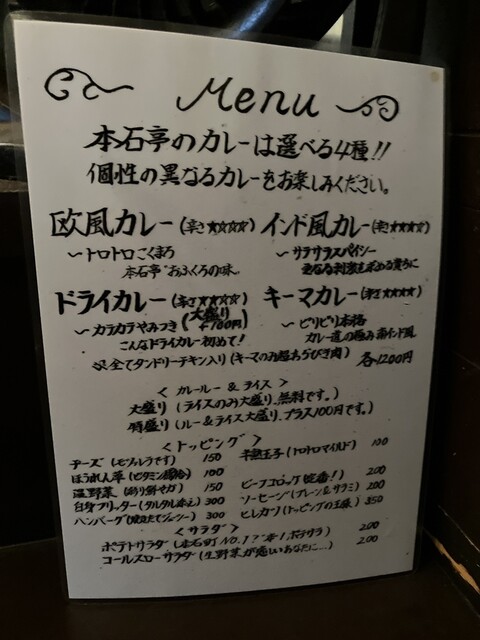 Menu
本石亭のカレーは選べる4種!!
個性の異なるカレーをお楽しみください。
欧風カレー(辛さ★☆☆☆) インド風カレー(辛さ★★☆☆)
〜トロトロこくまろ 〜サラサラスパイシー
本石亭"おふくろの味〟 更なる刺激を求める貴方に
ドライカレー(辛さ★★★☆) キーマカレー(辛さ★★★★)
(大盛り+100円)
〜カラカラやみつき 〜ピリピリ本格
こんなドライカレー初めて! カレー道の極み南インド風
※全てタンドリーチキン入り(キーマのみ超あらびき肉) 各1200円
<カレールー&ライス>
大盛り(ライスのみ大盛り、無料です。)
特盛り(ルー&ライス大盛り、プラス100円です。)
<トッピング>
チーズ(モツァレラです) 150 半熟玉子(トロトロマイルド) 100
ほうれん草(ビタミン) 100
温野菜(彩り鮮やか) 150 ビーフコロッケ(定番!) 200
白身フリッター(タルタル添え) 300 ソーセージ(プレーン&サラミ) 200
ハンバーグ(焼立てジューシー) 300 ヒレカツ(トッピングの王様) 350
<サラダ>
ポテトサラダ(本石町NO.1?) 200
コールスローサラダ(生野菜が恋しいあなたに…) 200